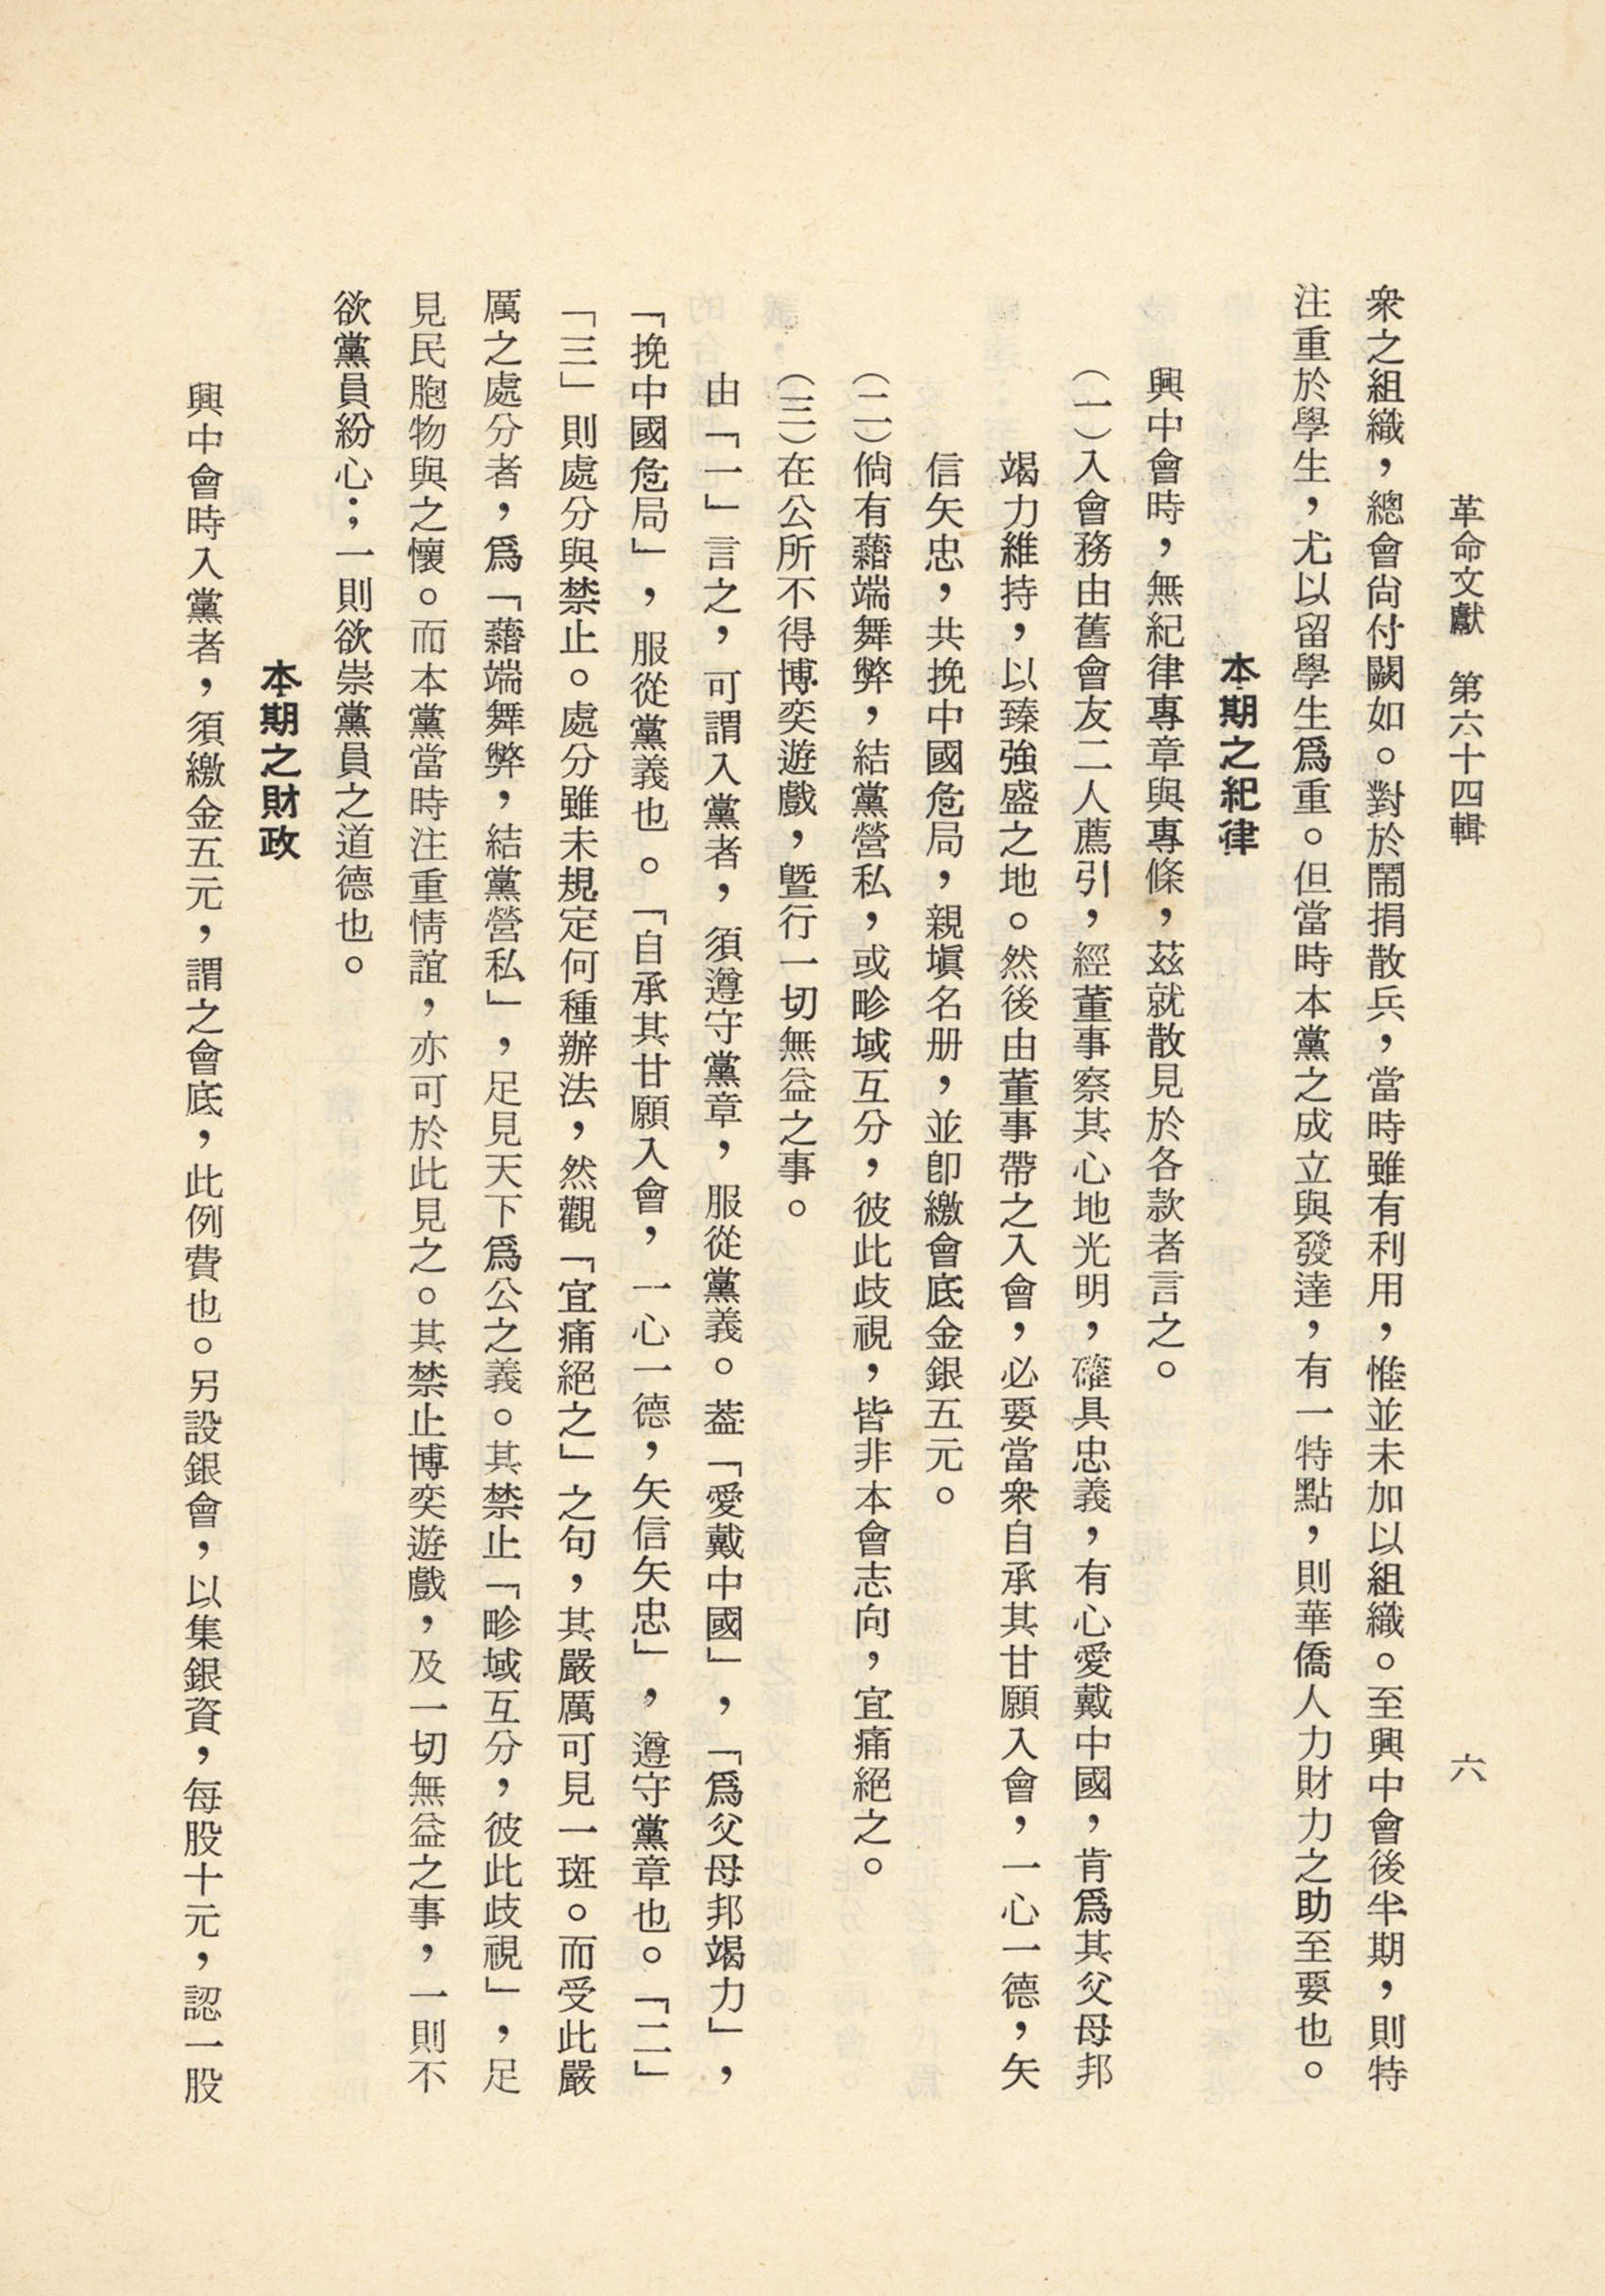 革命文獻　第六十四輯　六
衆之組織，總會尙付闕如。對於鬧捐散兵，當時雖有利用，惟並未加以組織。至興中會後半期，則特
注重於學生，尤以留學生爲重。但當時本黨之成立與發達，有一特點，則華僑人力財力之助至要也。
本期之紀律
興中會時，無紀律專章與專條，茲就散見於各款者言之。
（一）入會務由舊會友二人薦引，經董事察其心地光明，確具忠義，有心愛戴中國，肯爲其父母邦
竭力維持，以臻強盛之地。然後由董事帶之入會，必要當衆自承其甘願入會，一心一德，矢
信矢忠，共挽中國危局，親塡名册，並卽繳會底金銀五元。
（二）倘有藉端舞弊，結黨營私，或畛域互分，彼此歧視，皆非本會志向，宜痛絕之。
（三）在公所不得博奕遊戲，曁行一切無益之事。
由「一」言之，可謂入黨者，須遵守黨章，服從黨義。葢「愛戴中國」，「爲父母邦竭力」，
「挽中國危局」，服從黨義也。「自承其甘願入會，一心一德，矢信矢忠」，遵守黨章也。「二」
「三」則處分與禁止。處分雖未規定何種辦法，然觀「宜痛絕之」之句，其嚴厲可見一斑。而受此嚴
厲之處分者，爲「藉端舞弊，結黨營私」，足見天下爲公之義。其禁止「畛域互分，彼此歧視」，足
見民胞物與之懷。而本黨當時注重情誼，亦可於此見之。其禁止博奕遊戲，及一切無益之事，一則不
欲黨員紛心；一則欲崇黨員之道德也。
本期之財政
興中會時入黨者，須繳金五元，謂之會底，此例費也。另設銀會，以集銀資，每股十元，認一股